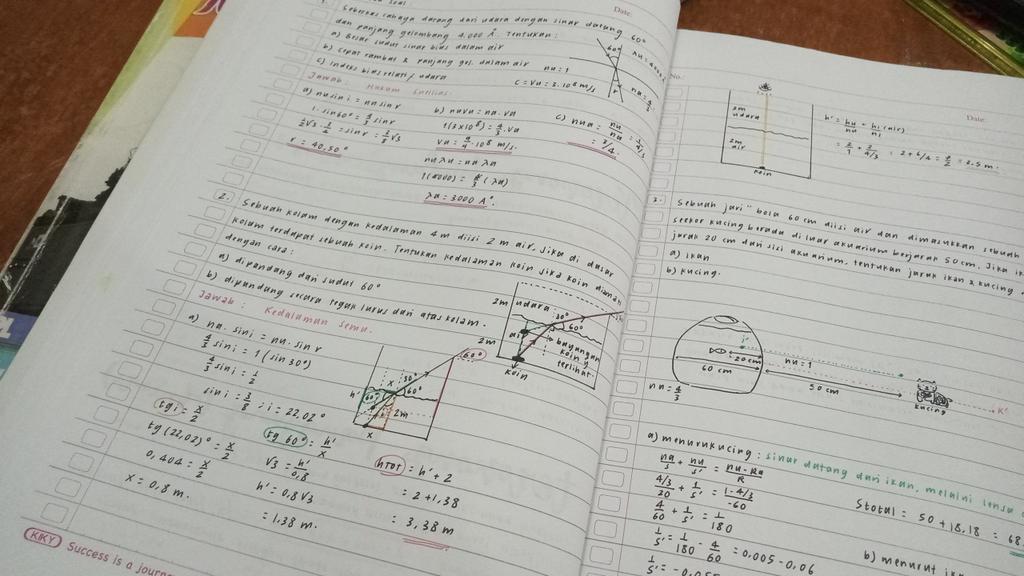 Date:
Seberkas cahaya datang dari udara dengan sinar datang 60°
dan panjang gelombang 4.000 Å. Tentukan:
a) Besar sudut sinar bias dalam air
b) Cepat rambat & panjang gel. dalam air
c) Indeks bias relatif udara
60°
r
nu = 1
C = Vu = 3.10⁸ m/s
Jawab: Hukum Snellius.
a) nu sin i = na sin r
1. sin 60° = 4/3 sin r
r = 40,50°
b) nu vu = na. va
1 (3x10⁸) = 4/3. va
va = 9/4 .10⁸ m/s.
nu λu = na λa
1 (4000) = 4/3 (λa)
λa = 3000 A°.
c) nua = nu/na = 1/4/3
= 3/4
2. Sebuah kolam dengan kedalaman 4 m diisi 2 m air, jika di dasar
kolam terdapat sebuah koin. Tentukan kedalaman koin jika koin diamati
dengan cara:
a) dipandang dari sudut 60°
b) dipandang secara tegak lurus dari atas kolam.
Jawab: Kedalaman semu.
2m
2m
udara
30°
60°
air
bayangan
koin yg
terlihat.
koin
a) na. sin i = nu. sin r
4/3 sin i = 1 (sin 30°)
4/3 sin i = 1/2
sin i = 3/8 ; i = 22,02°
60°
30°
60°
60°
h'
x
2m
x
tg i = x/2
tg (22,02)° = x/2
0,404 = x/2
x = 0,8 m.
tg 60° = h'/x
√3 = h'/0,8
h' = 0,8√3
= 1,38 m.
htot = h' + 2
= 2 + 1,38
= 3,38 m
KIKY
Success is a journey
No.:
Date:
2m
udara
2m
air
koin
h' = hu/nu + hi (air)/ni
= 2/1 + 2/4/3 = 2 + 6/4 = 7/2 = 3.5 m.
3. Sebuah jari" bola 60 cm diisi air dan dimasukkan sebuah
seekor kucing berada di luar akuarium berjarak 50 cm. Jika
jarak 20 cm dari sisi akuarium, tentukan jarak ikan & kucing
a) ikan
b) kucing.
20 cm
60 cm
na = 4/3
nu = 1
50 cm
kucing
K'
a) menurut kucing: sinar datang dari ikan, melalui lensa
na/s + nu/s' = nu-na/R
4/3/20 + 1/s' = 1-4/3/-60
4/60 + 1/s' = 1/180
1/s' = 1/180 - 4/60 = 0,005 - 0,06
Stotal = 50 + 18,18 = 68
b) menurut